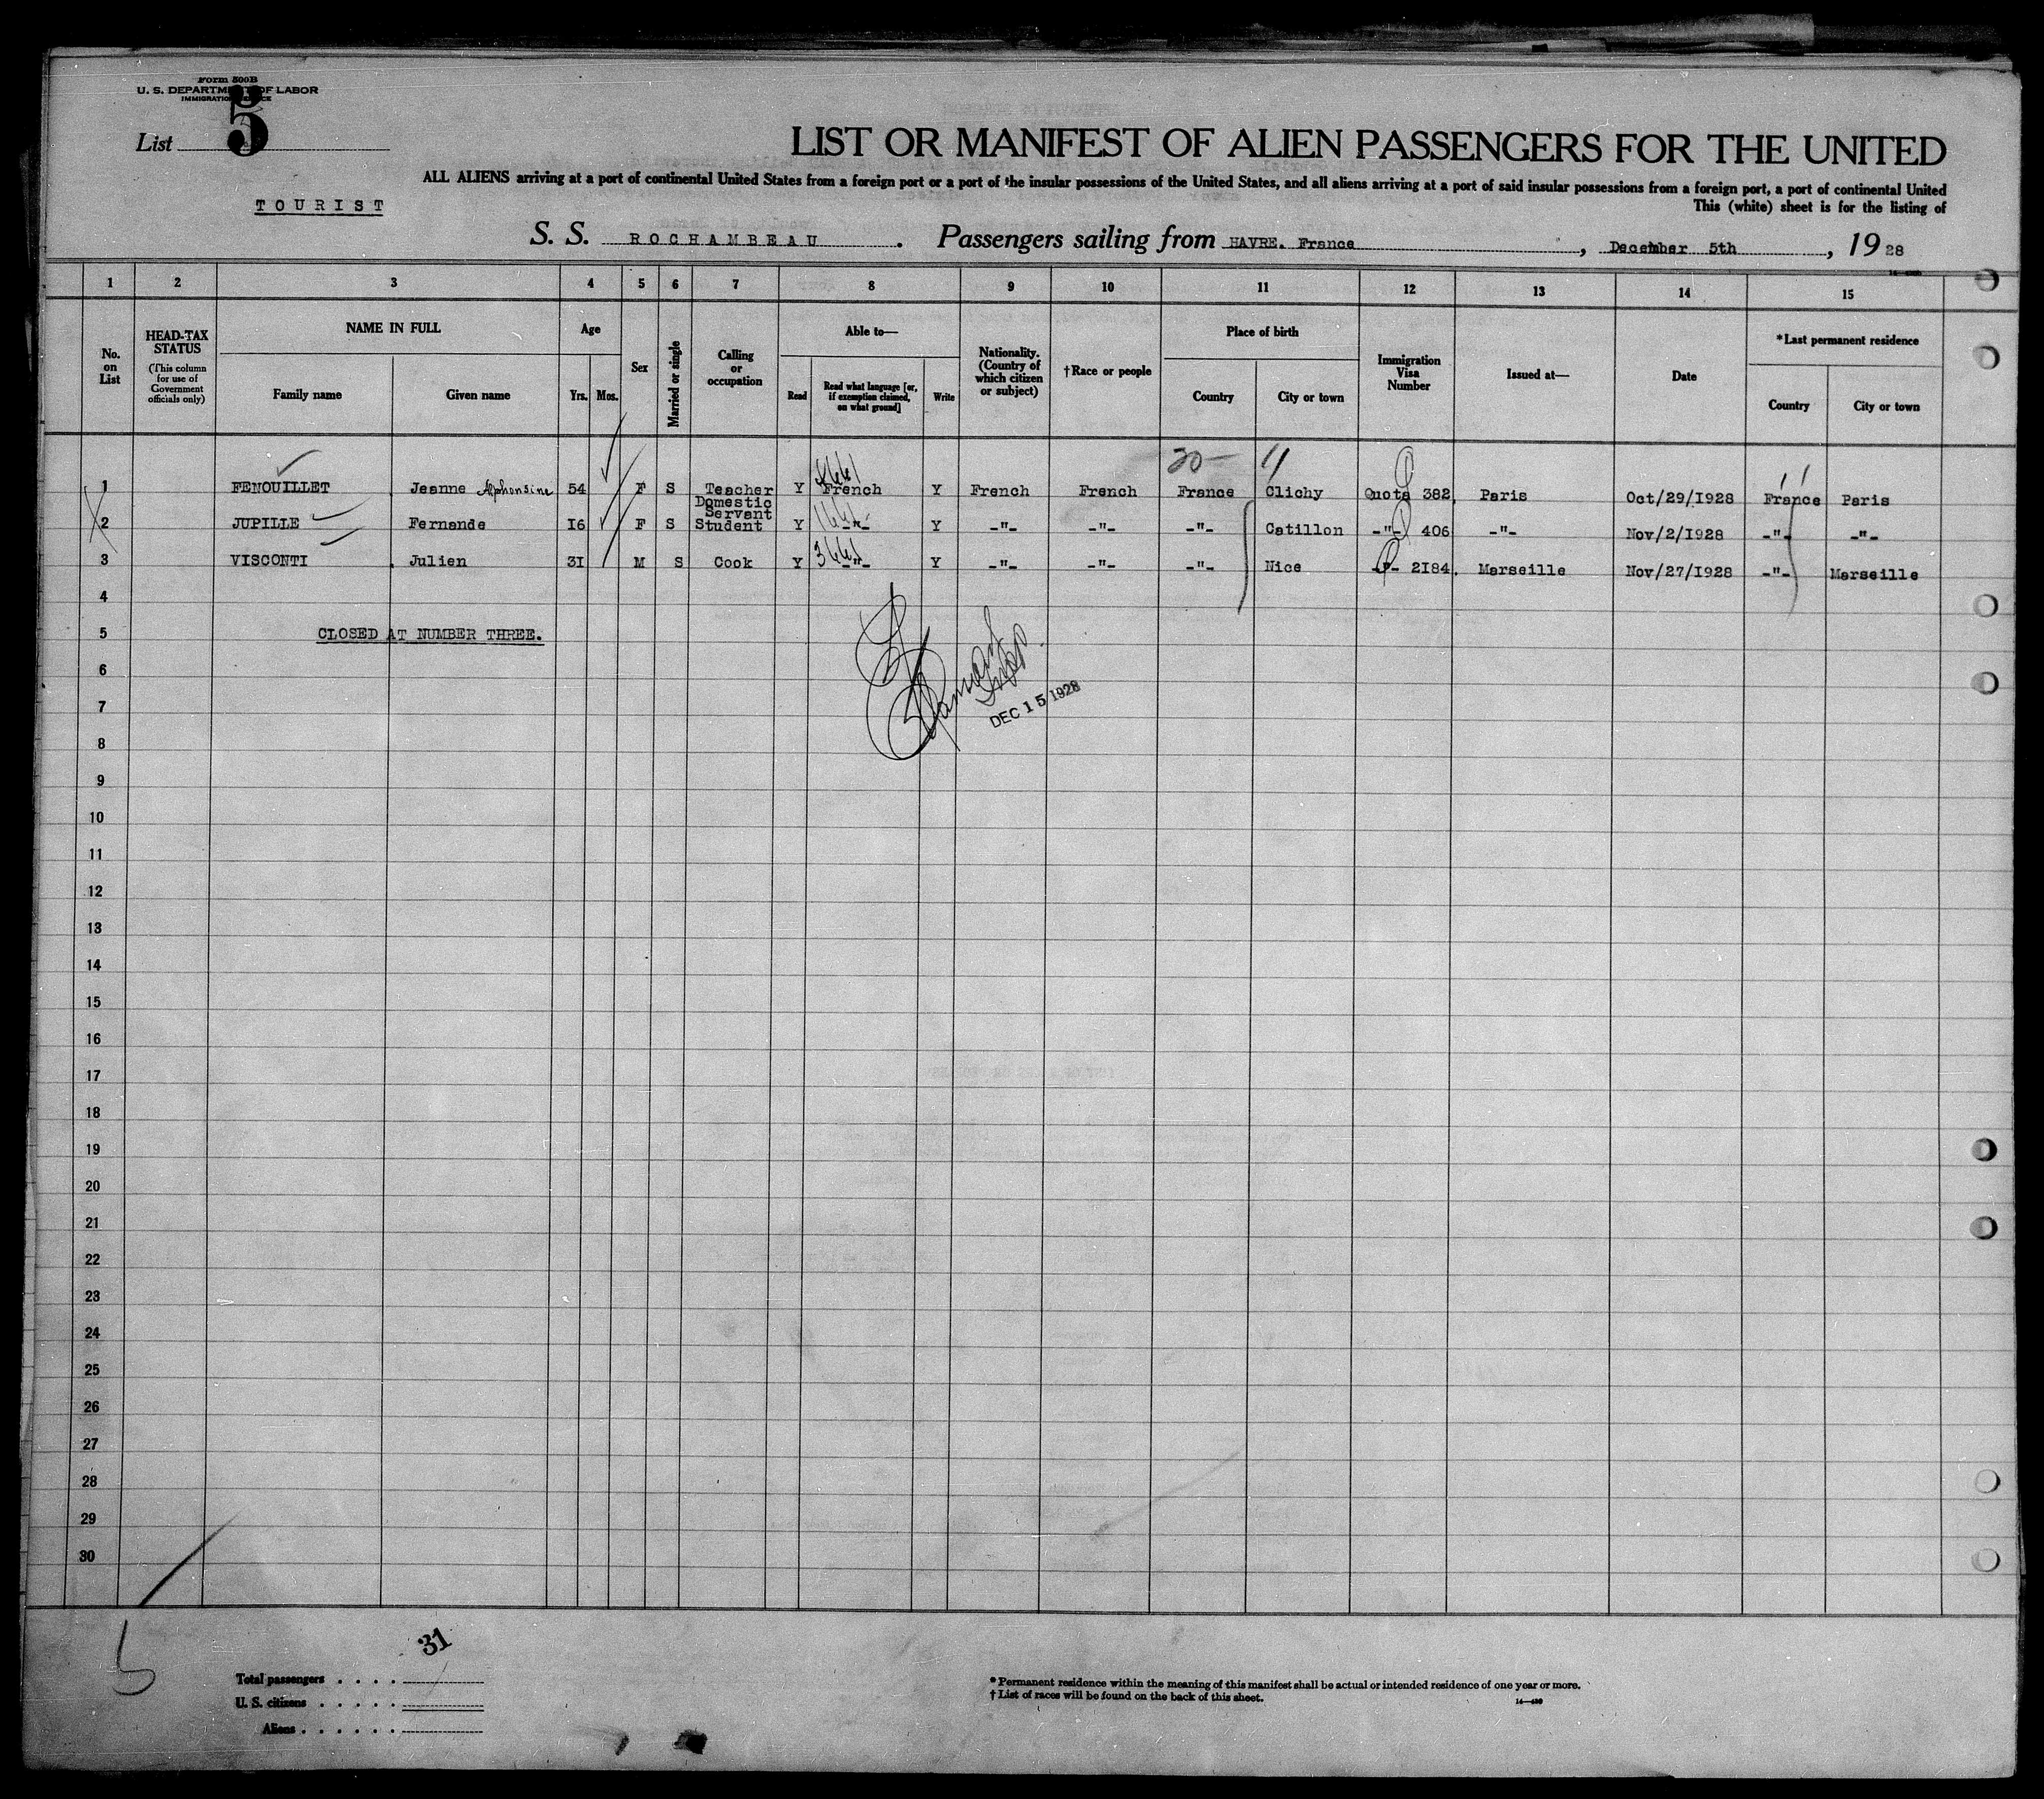 Form 500B
U. S. DEPARTMENT OF LABOR
IMMIGRATION SERVICE
List 5
LIST OR MANIFEST OF ALIEN PASSENGERS FOR THE UNITED
ALL ALIENS arriving at a port of continental United States from a foreign port or a port of the insular possessions of the United States, and all aliens arriving at a port of said insular possessions from a foreign port, a port of continental United
TOURIST
This (white) sheet is for the listing of
S. S. ROCHAMBEAU . Passengers sailing from HAVRE. France , December 5th , 1928
1 2 3 4 5 6 7 8 9 10 11 12 13 14 15
No. on List
HEAD-TAX STATUS
(This column for use of Government officials only)
NAME IN FULL
Family name
Given name
Age
Yrs. Mos.
Sex
Married or single
Calling or occupation
Able to—
Read
Read what language [or, if exemption claimed, on what ground]
Write
Nationality. (Country of which citizen or subject)
†Race or people
Place of birth
Country
City or town
Immigration Visa Number
Issued at—
Date
*Last permanent residence
Country
City or town
1 FENOUILLET Jeanne Alphonsine 54 F S Teacher Y French Y French French France Clichy Quota 382 Paris Oct/29/1928 France Paris
Domestic Servant
2 JUPILLE Fernande 16 F S Student Y -"- Y -"- -"- -"- Catillon -"- 406 -"- Nov/2/1928 -"- -"-
3 VISCONTI Julien 31 M S Cook Y -"- Y -"- -"- -"- Nice -"- 2184 Marseille Nov/27/1928 -"- Marseille
4
5 CLOSED AT NUMBER THREE.
6
DEC 15 1928
7
8
9
10
11
12
13
14
15
16
17
18
19
20
21
22
23
24
25
26
27
28
29
30
5
31
Total passengers
U. S. citizens
Aliens
* Permanent residence within the meaning of this manifest shall be actual or intended residence of one year or more.
† List of races will be found on the back of this sheet.